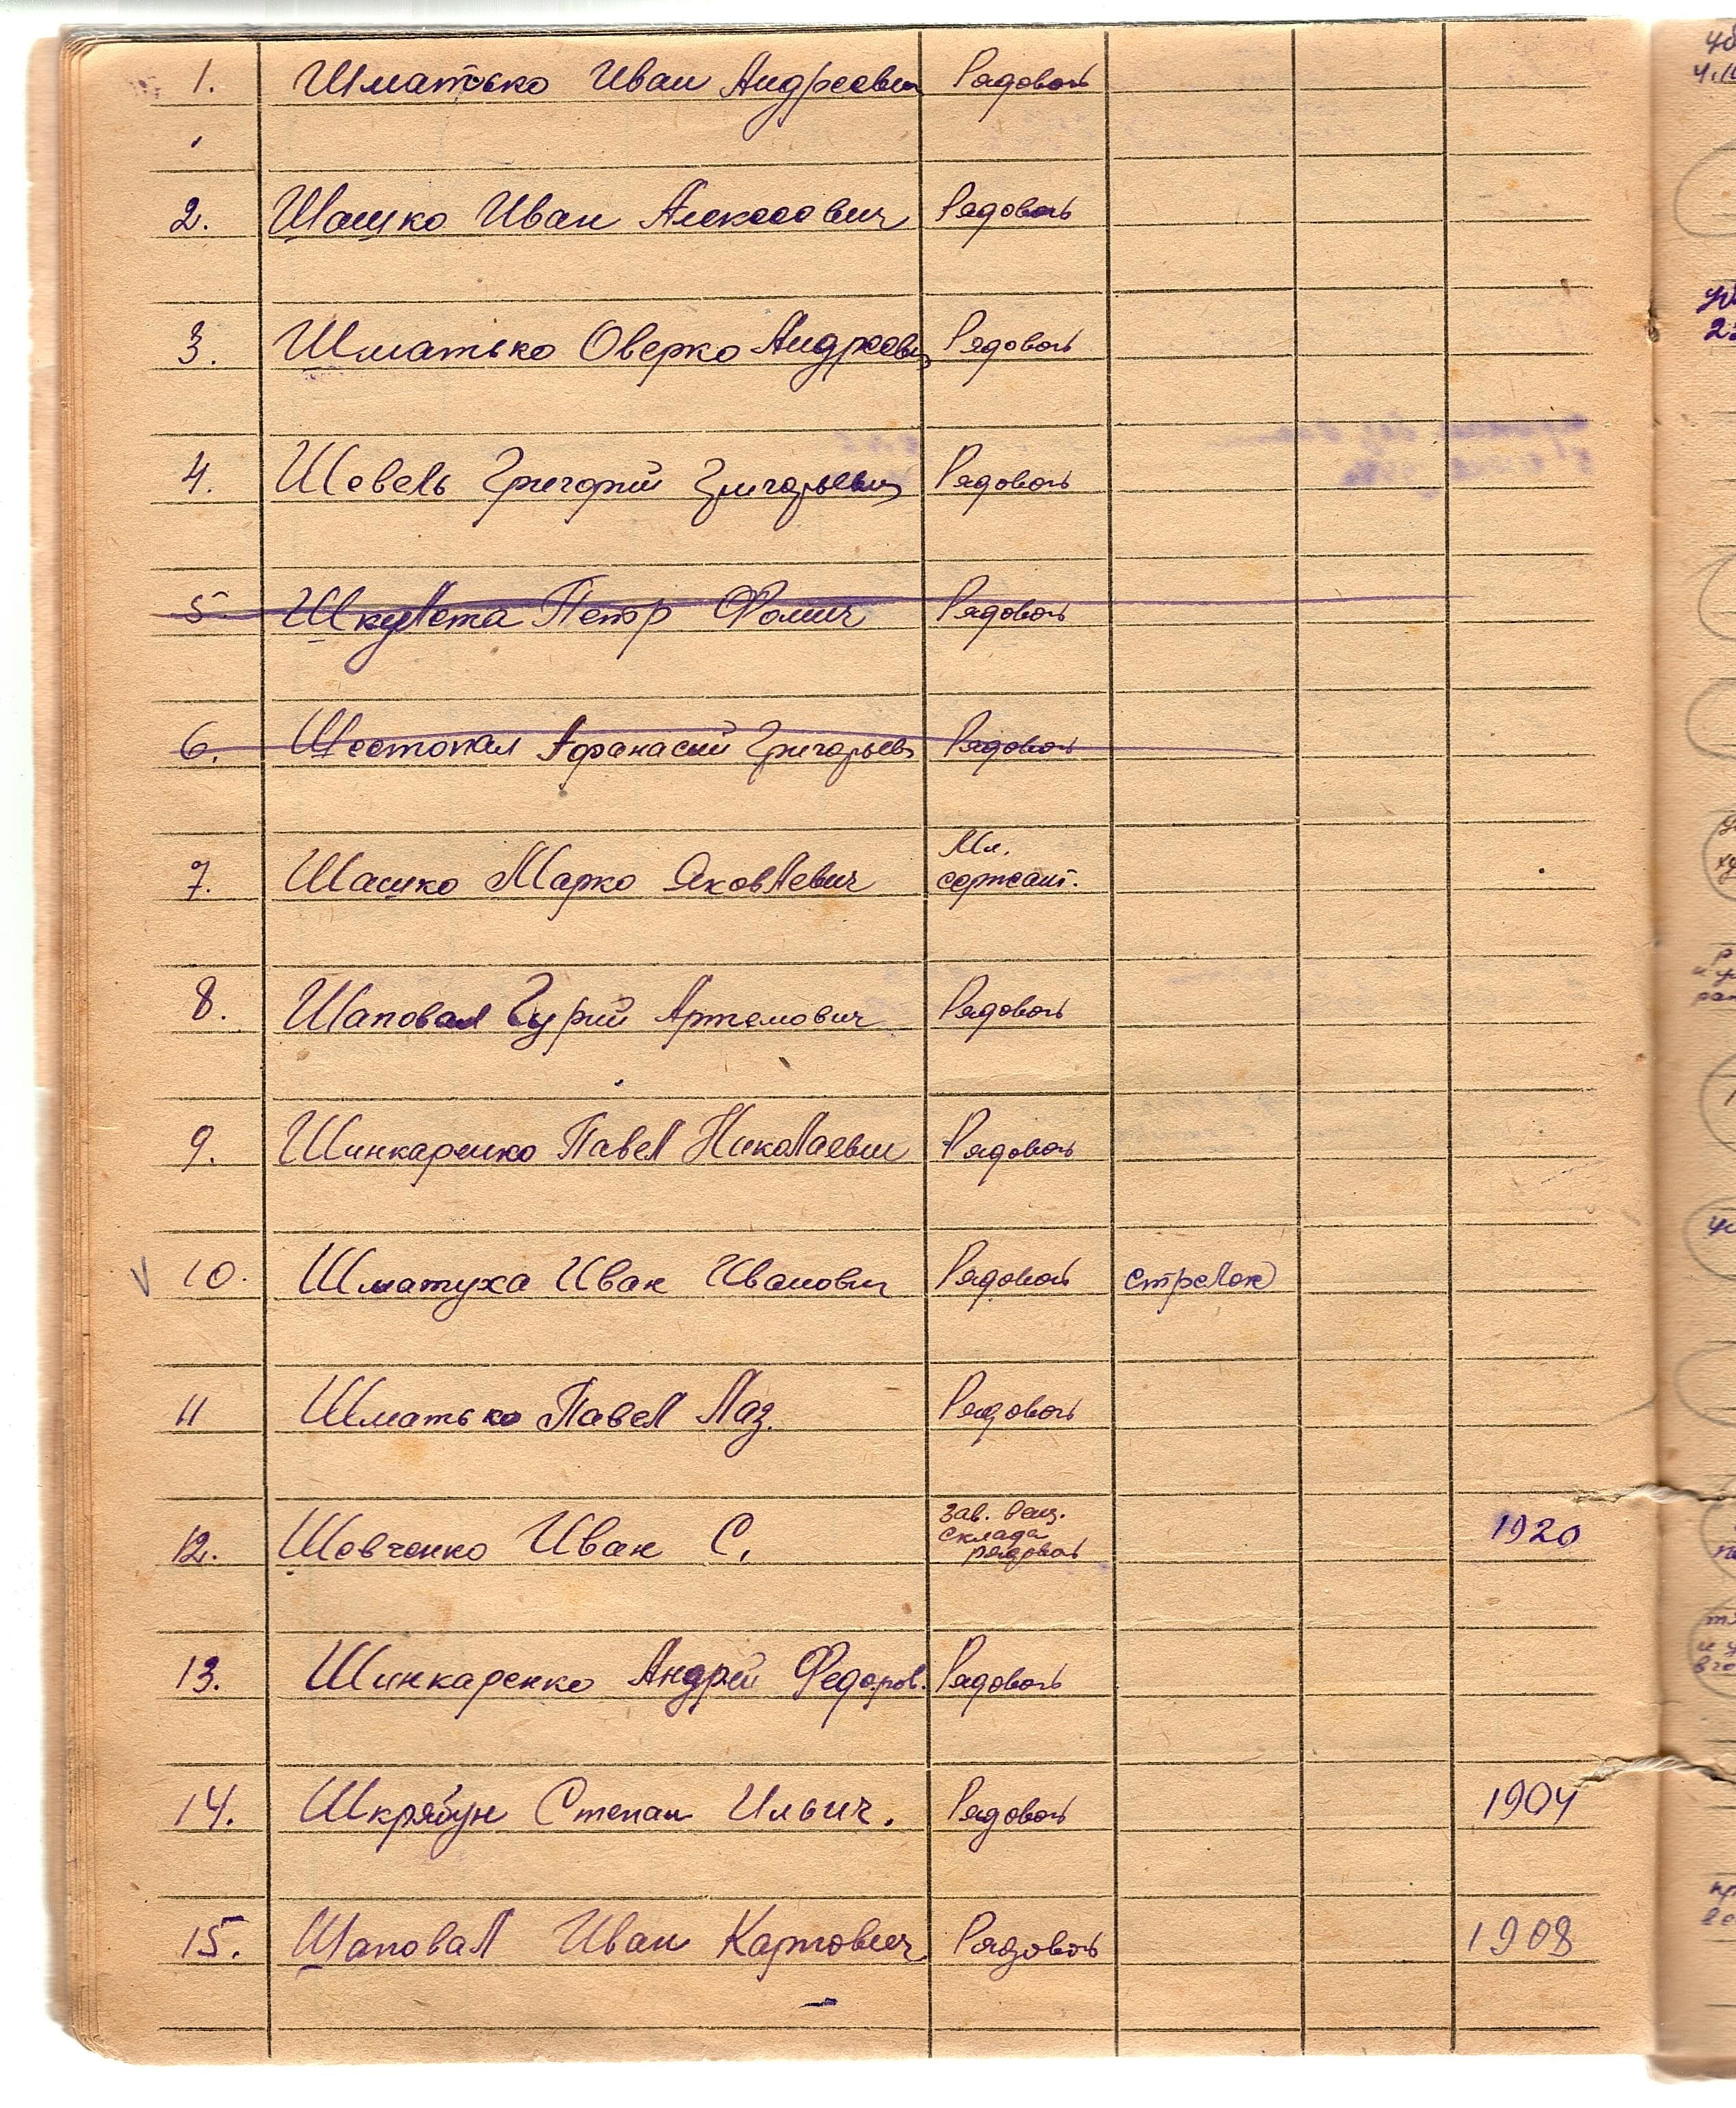 1. Шматько Иван Андреевич Рядовой
2. Шашко Иван Алексеевич Рядовой
3. Шматько Оверко Андреевич Рядовой
4. Шевель Григорий Григорьевич Рядовой
5 Шкулета Петр Фомич Рядовой
6. Шестопал Афанасий Григорьев Рядовой
7. Шашко Марко Яковлевич Мл.
сержант.
8. Шаповал Гурий Артемович Рядовой
9. Шинкаренко Павел Николаевич Рядовой
10. Шматуха Иван Иванович Рядовой стрелок
11 Шматько Павел Лаз. Рядовой
12. Шевченко Иван С. Зав. вещ.
склада
рядовой 1920
13. Шинкаренко Андрей Федоров. Рядовой
14. Шкрябун Степан Ильич. Рядовой 1904
15. Шаповал Иван Карпович Рядовой 1908